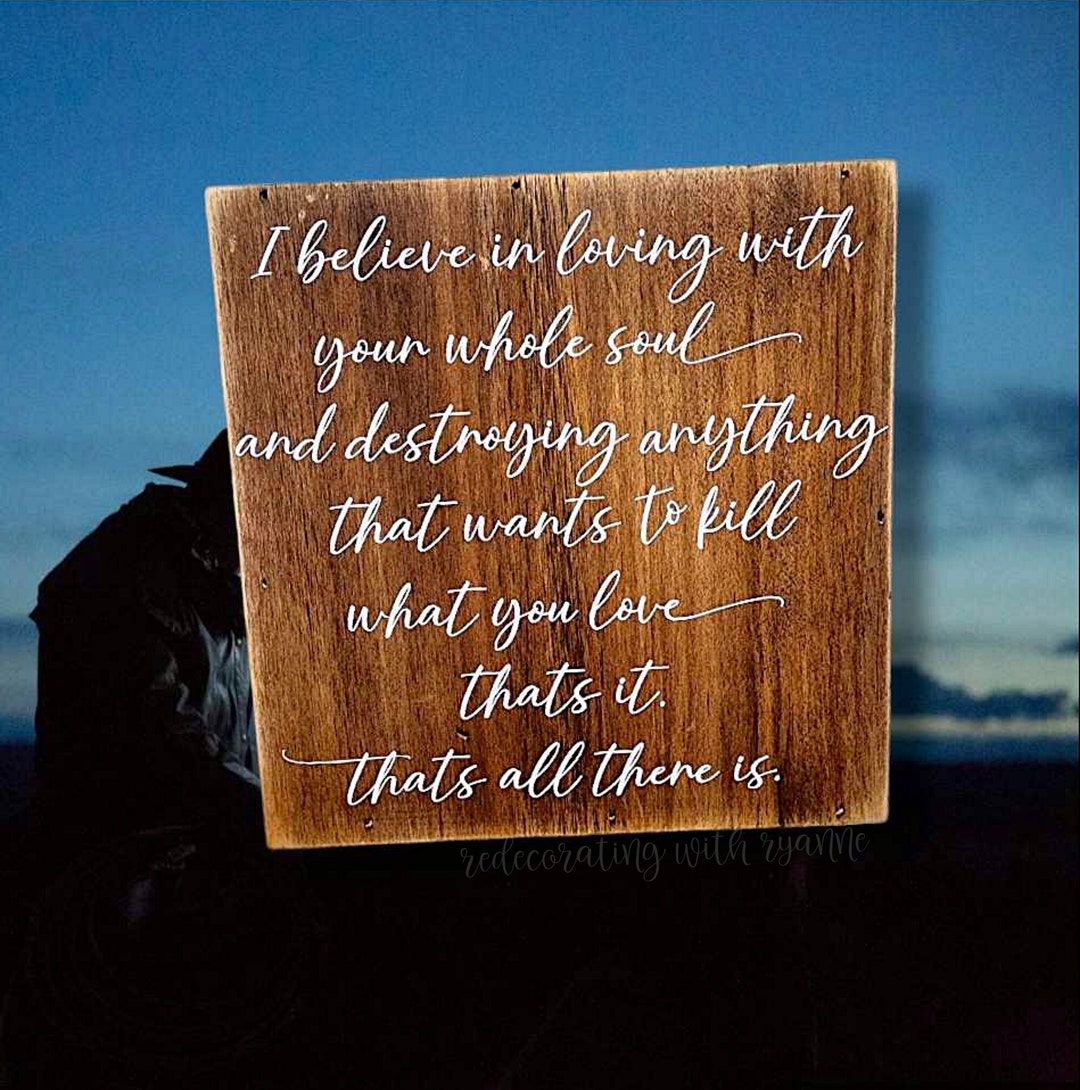 I believe in loving with
your whole soul
and destroying anything
that wants to kill
what you love
thats it.
thats all there is.
redecorating with ryanne